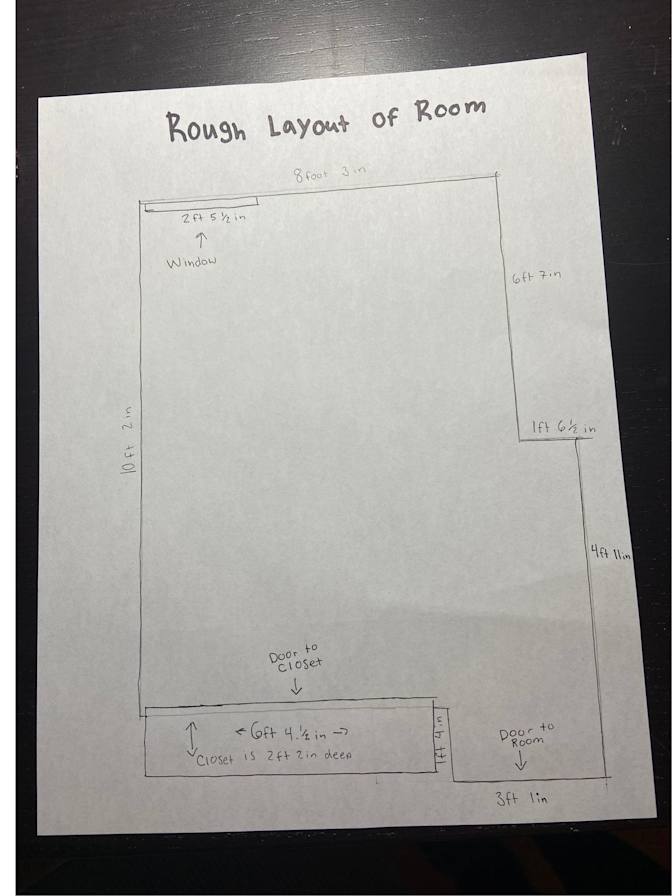 Rough Layout of Room
8 foot 3 in
2 ft 5 ½ in
Window
6ft 7in
1ft 6½ in
10 ft 2 in
4ft 11in
Door to
Closet
6ft 4 ½ in
Closet is 2ft 2in deep
1ft 4in
Door to
Room
3ft 1in